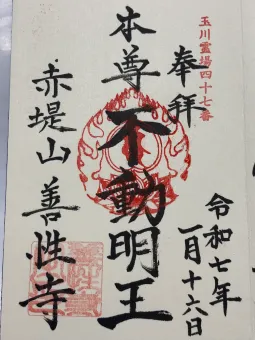 玉川霊場四十七番
奉拝
令和七年
一月十六日
本尊
不動明王
赤堤山
善性寺